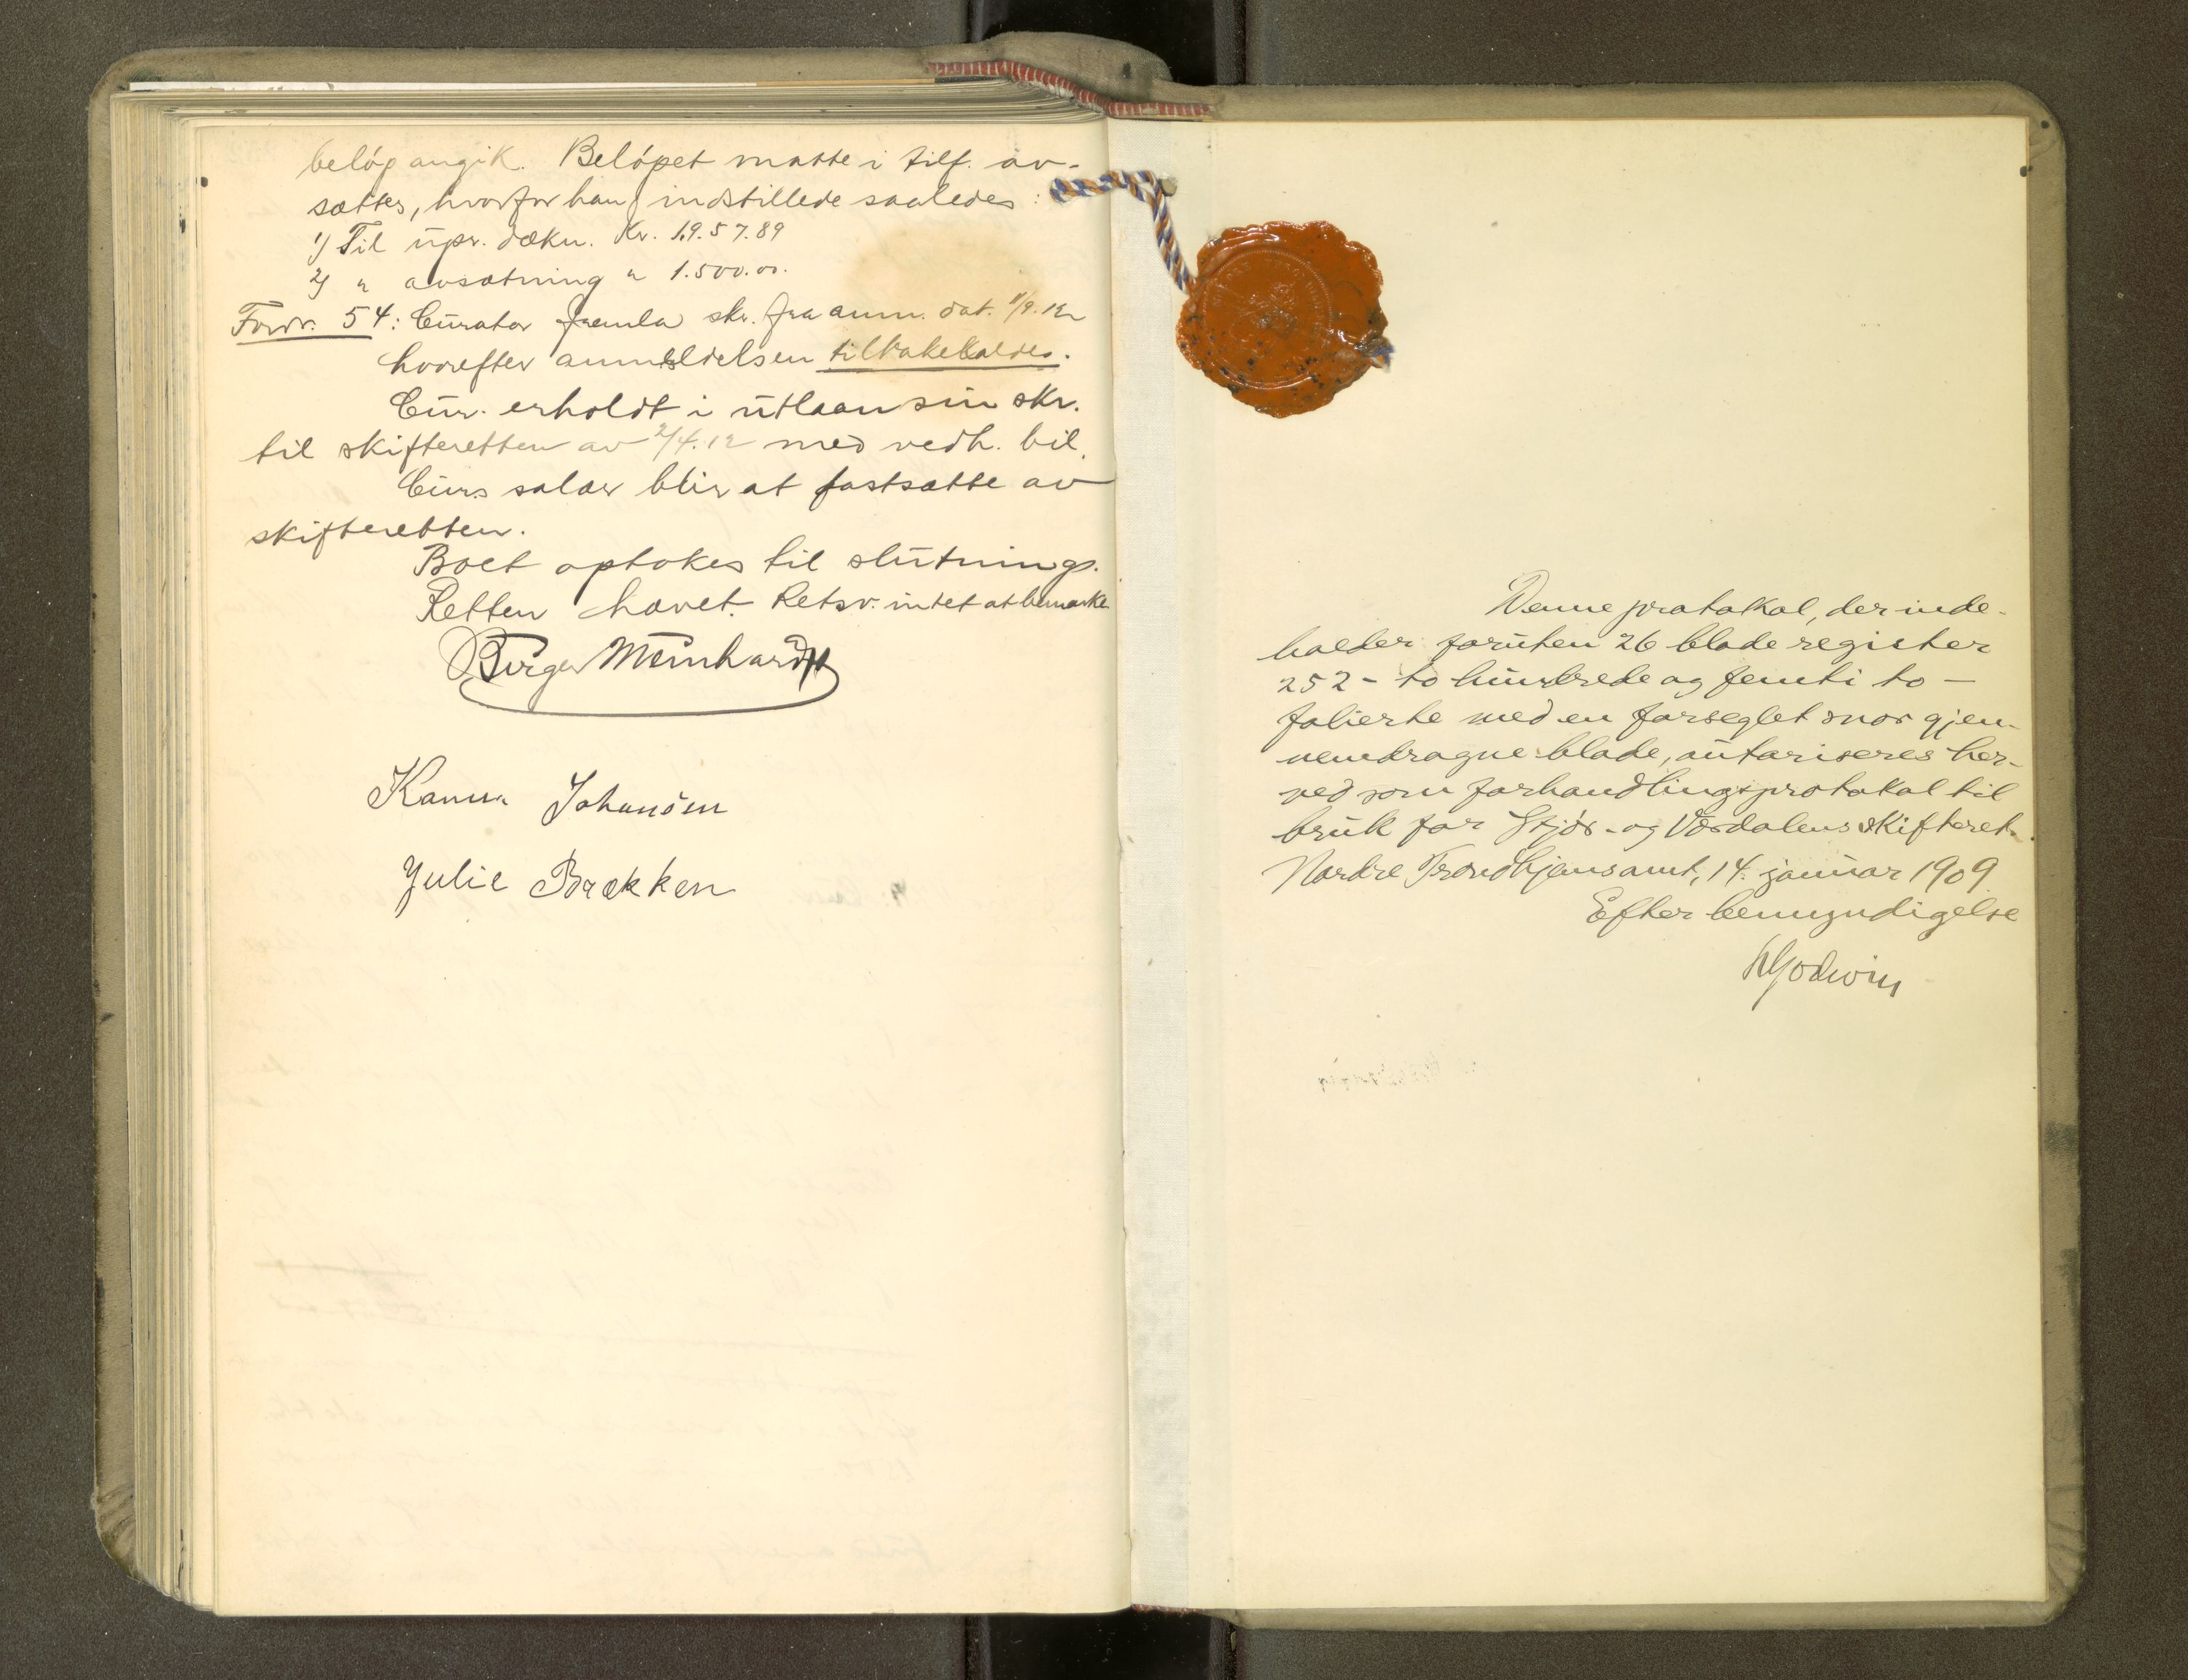 beløp angik. Beløpet maatte i tilf. av-
sættes, hvorfor han indstillede saaledes:
1) Til upr. dækn. Kr. 1.957.89
2) " avsætning " 1.500.00.
Fordr. 54: Curator fremla skr. fra anm. dat. 11/9.12
hvorefter anmeldelsen tilbakekaldes.
Cur. erholdt i utlaan sin skr.
til skifteretten av 2/4.12 med vedh. bil.
Curs salær blir at fastsætte av
skifteretten.
Boet optokes til slutning.
Retten hævet. Retsv. intet at bemærke
Birger Meinhardt
Johansen
Julie Brækken
Denne protokol, der inde-
holder foruten 26 blade register
252 - to hundrede og femti to -
folierte med en forseglet snor gjen-
nemdragne blade, autoriseres her-
ved som forhandlingsprotokol til
bruk for Stjør- og Værdalens skifteret.
Nordre Trondhjems amt, 14. januar 1909
Efter bemyndigelse